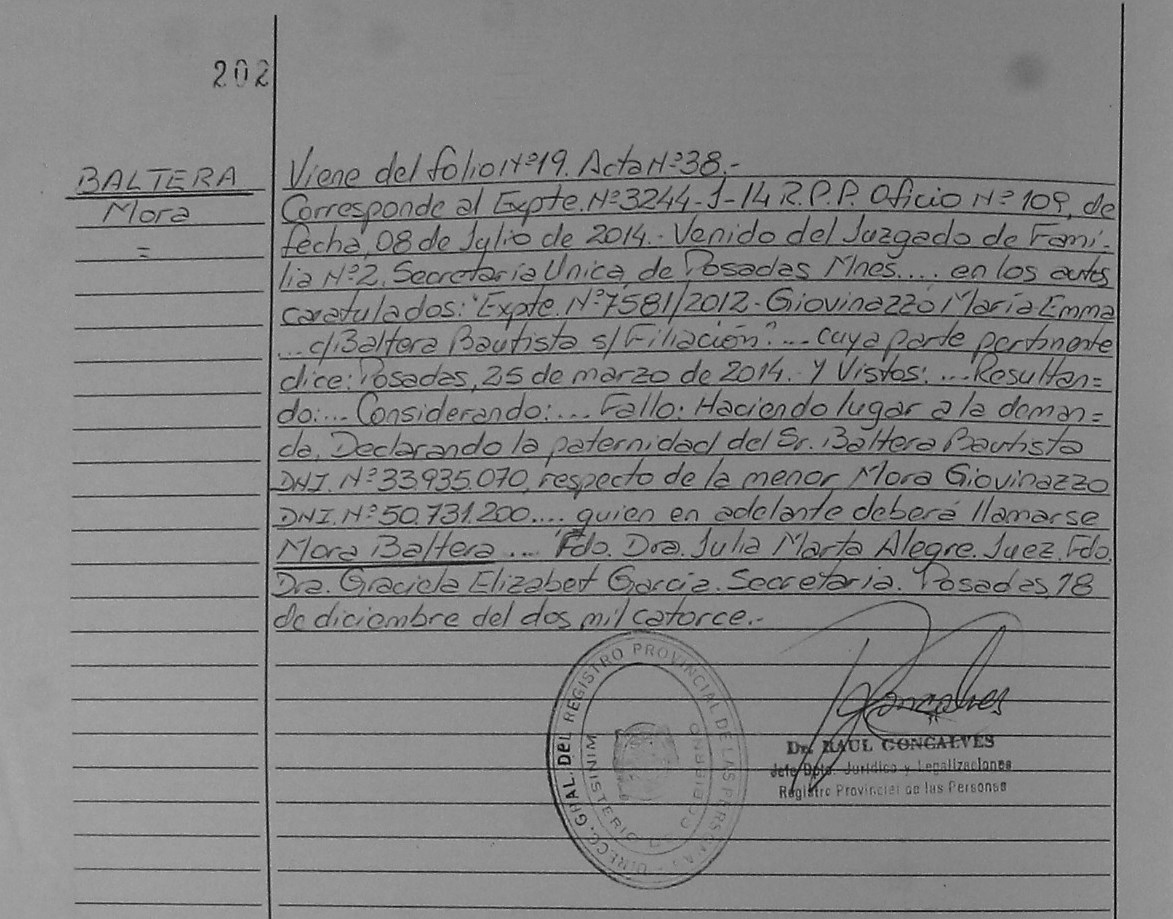 202
BALTERA
Mora
=
Viene del folio Nº19. Acta Nº38.-
Corresponde al Expte. Nº3244-J-14 R.P.P. Oficio Nº 109, de
fecha, 08 de Julio de 2014.- Venido del Juzgado de Fami-
lia Nº2. Secretaría Unica, de Posadas Mnes.... en los autos
caratulados: "Expte. Nº7581/2012- Giovinazzo María Emma
... c/ Baltera Bautista s/ Filiación".... cuya parte pertinente
dice: Posadas, 25 de marzo de 2014. Y Vistos: ... Resultan=
do:... Considerando:... Fallo: Haciendo lugar a la deman=
da, Declarando la paternidad del Sr. Baltera Bautista
DNI. Nº33.935.070, respecto de la menor Mora Giovinazzo
DNI. Nº50.731.200.... quien en adelante deberá llamarse
Mora Baltera ... Fdo. Dra. Julia Marta Alegre. Juez. Fdo.
Dra. Graciela Elizabet García. Secretaria. Posadas, 18
de diciembre del dos mil catorce.-
DIRECC. GRAL. DEL REGISTRO PROVINCIAL DE LAS PERSONAS
MINISTERIO DE GOBIERNO
Goncalves
Dr. RAUL GONCALVES
Jefe Dpto. Jurídico y Legalizaciones
Registro Provincial de las Personas